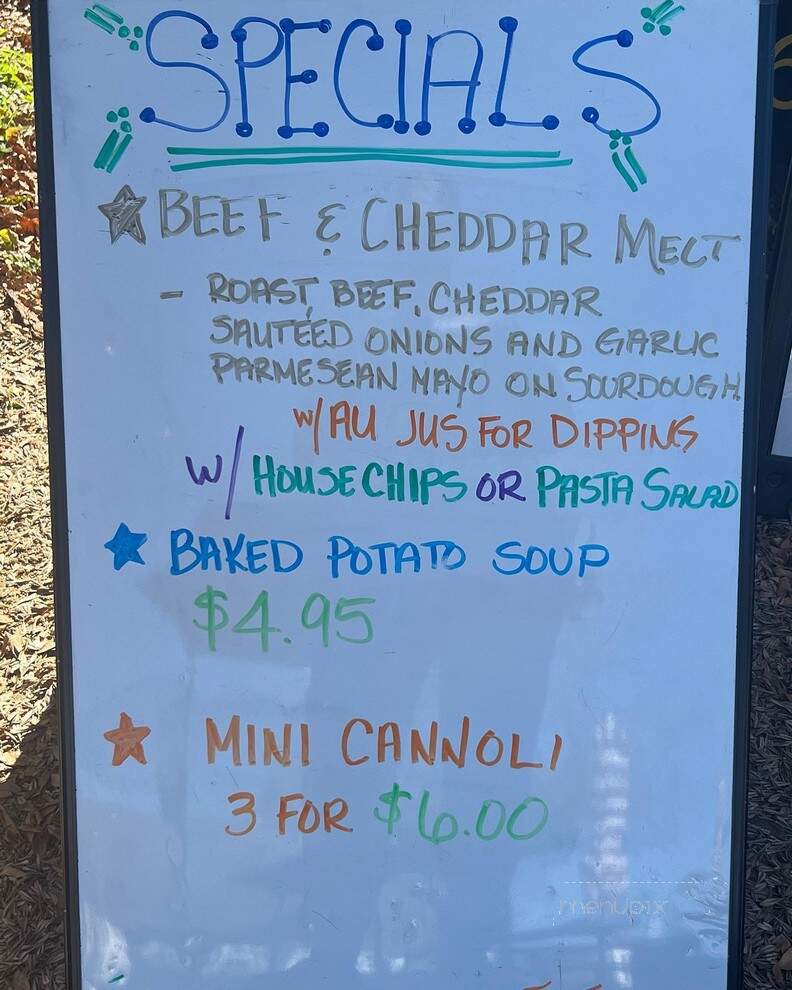 SPECIALS
BEEF & CHEDDAR MELT
- ROAST BEEF, CHEDDAR
SAUTÉED ONIONS AND GARLIC
PARMESEAN MAYO ON SOURDOUGH
W/ AU JUS FOR DIPPING
W/ HOUSE CHIPS OR PASTA SALAD
BAKED POTATO SOUP
$4.95
MINI CANNOLI
3 FOR $6.00
menupix